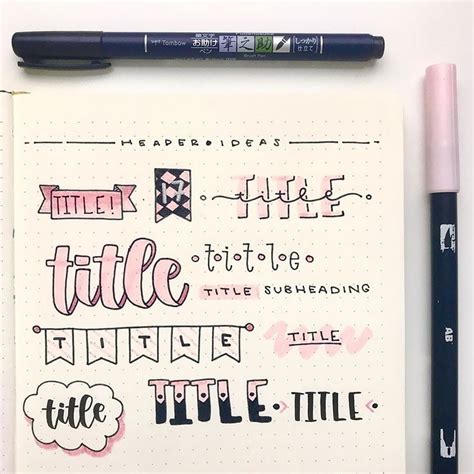 Tombow 筆文字 お助け 筆之助 しっかり仕立て
Brush Pen
HEADER IDEAS
TITLE!
17
title
TITLE
title
title
TITLE SUBHEADING
TITLE
TITLE
title
TITLE
TITLE
AB